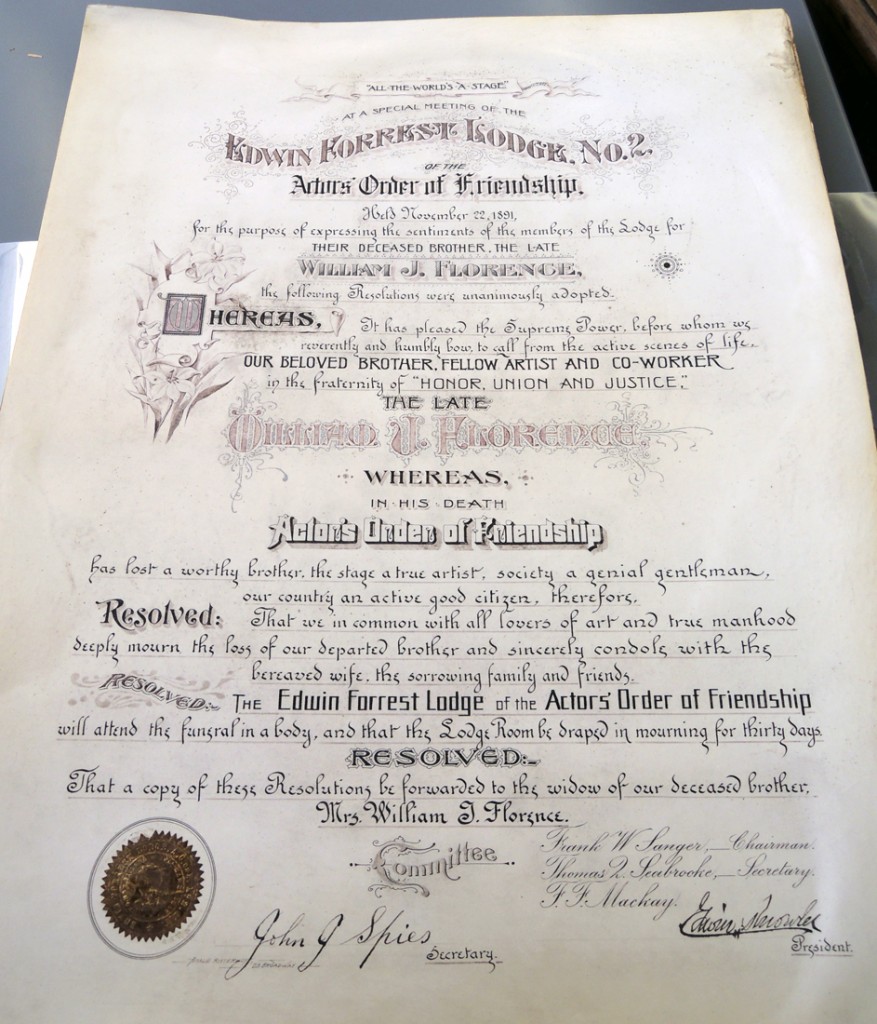 "ALL·THE·WORLD'S·A·STAGE"
AT A SPECIAL MEETING OF THE
EDWIN FORREST LODGE, NO.2,
OF THE
Actors' Order of Friendship,
Held November 22, 1891,
for the purpose of expressing the sentiments of the members of the Lodge for
THEIR DECEASED BROTHER, THE LATE
WILLIAM J. FLORENCE,
the following Resolutions were unanimously adopted.
WHEREAS, It has pleased the Supreme Power, before whom we
reverently and humbly bow, to call from the active scenes of life,
OUR BELOVED BROTHER, FELLOW ARTIST AND CO-WORKER
in the fraternity of "HONOR, UNION AND JUSTICE,"
THE LATE
WILLIAM J. FLORENCE.
WHEREAS,
IN HIS DEATH
Actor's Order of Friendship
has lost a worthy brother, the stage a true artist, society a genial gentleman,
our country an active good citizen, therefore,
Resolved: That we in common with all lovers of art and true manhood
deeply mourn the loss of our departed brother and sincerely condole with the
bereaved wife, the sorrowing family and friends.
RESOLVED:- THE Edwin Forrest Lodge of the Actors' Order of Friendship
will attend the funeral in a body, and that the Lodge Room be draped in mourning for thirty days.
RESOLVED:-
That a copy of these Resolutions be forwarded to the widow of our deceased brother,
Mrs. William J. Florence.
Committee
Frank W Sanger,—Chairman.
Thomas Q. Seabrooke,—Secretary.
F. F. Mackay.
John J Spies
Secretary.
Edwin Knowles
President.